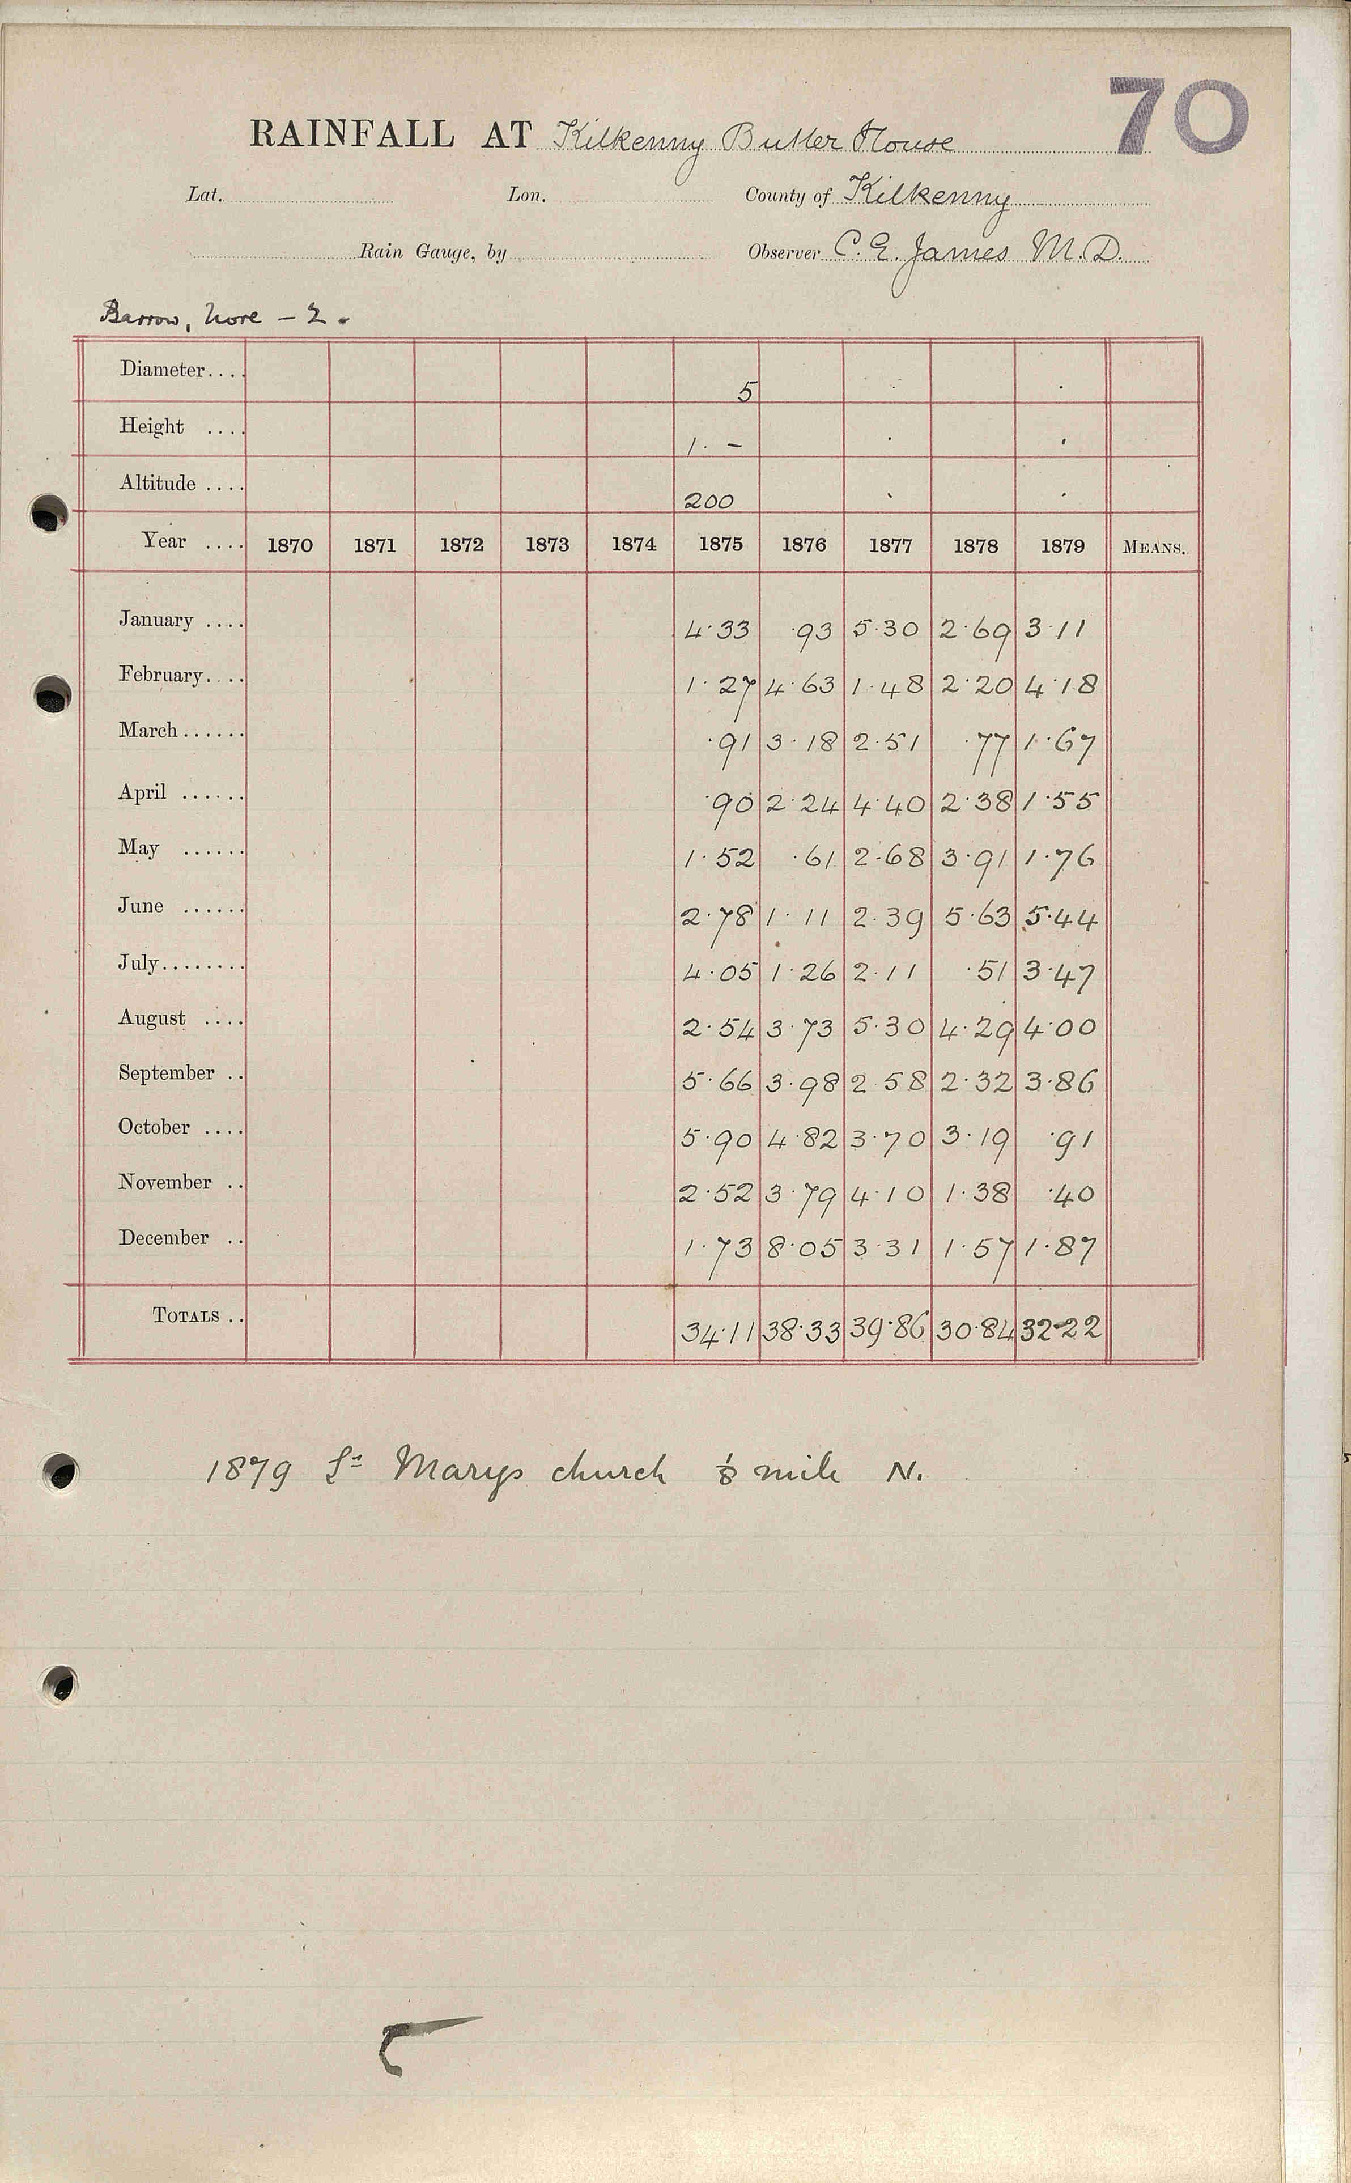 70
RAINFALL AT Kilkenny Butler House
Lat. Lon. County of Kilkenny
Rain Gauge, by Observer C. E. James M.D.
Barrow, Nore - 2.
Diameter.... 5
Height .... 1. -
Altitude .... 200
Year .... 1870 1871 1872 1873 1874 1875 1876 1877 1878 1879 MEANS.
January .... 4.33 .93 5.30 2.69 3.11
February.... 1.27 4.63 1.48 2.20 4.18
March...... .91 3.18 2.51 .77 1.67
April ...... .90 2.24 4.40 2.38 1.55
May ...... 1.52 .61 2.68 3.91 1.76
June ...... 2.78 1.11 2.39 5.63 5.44
July........ 4.05 1.26 2.11 .51 3.47
August .... 2.54 3.73 5.30 4.29 4.00
September .. 5.66 3.98 2.58 2.32 3.86
October .... 5.90 4.82 3.70 3.19 .91
November .. 2.52 3.79 4.10 1.38 .40
December .. 1.73 8.05 3.31 1.57 1.87
TOTALS .. 34.11 38.33 39.86 30.84 32.22
1879 St Marys church ⅛ mile N.